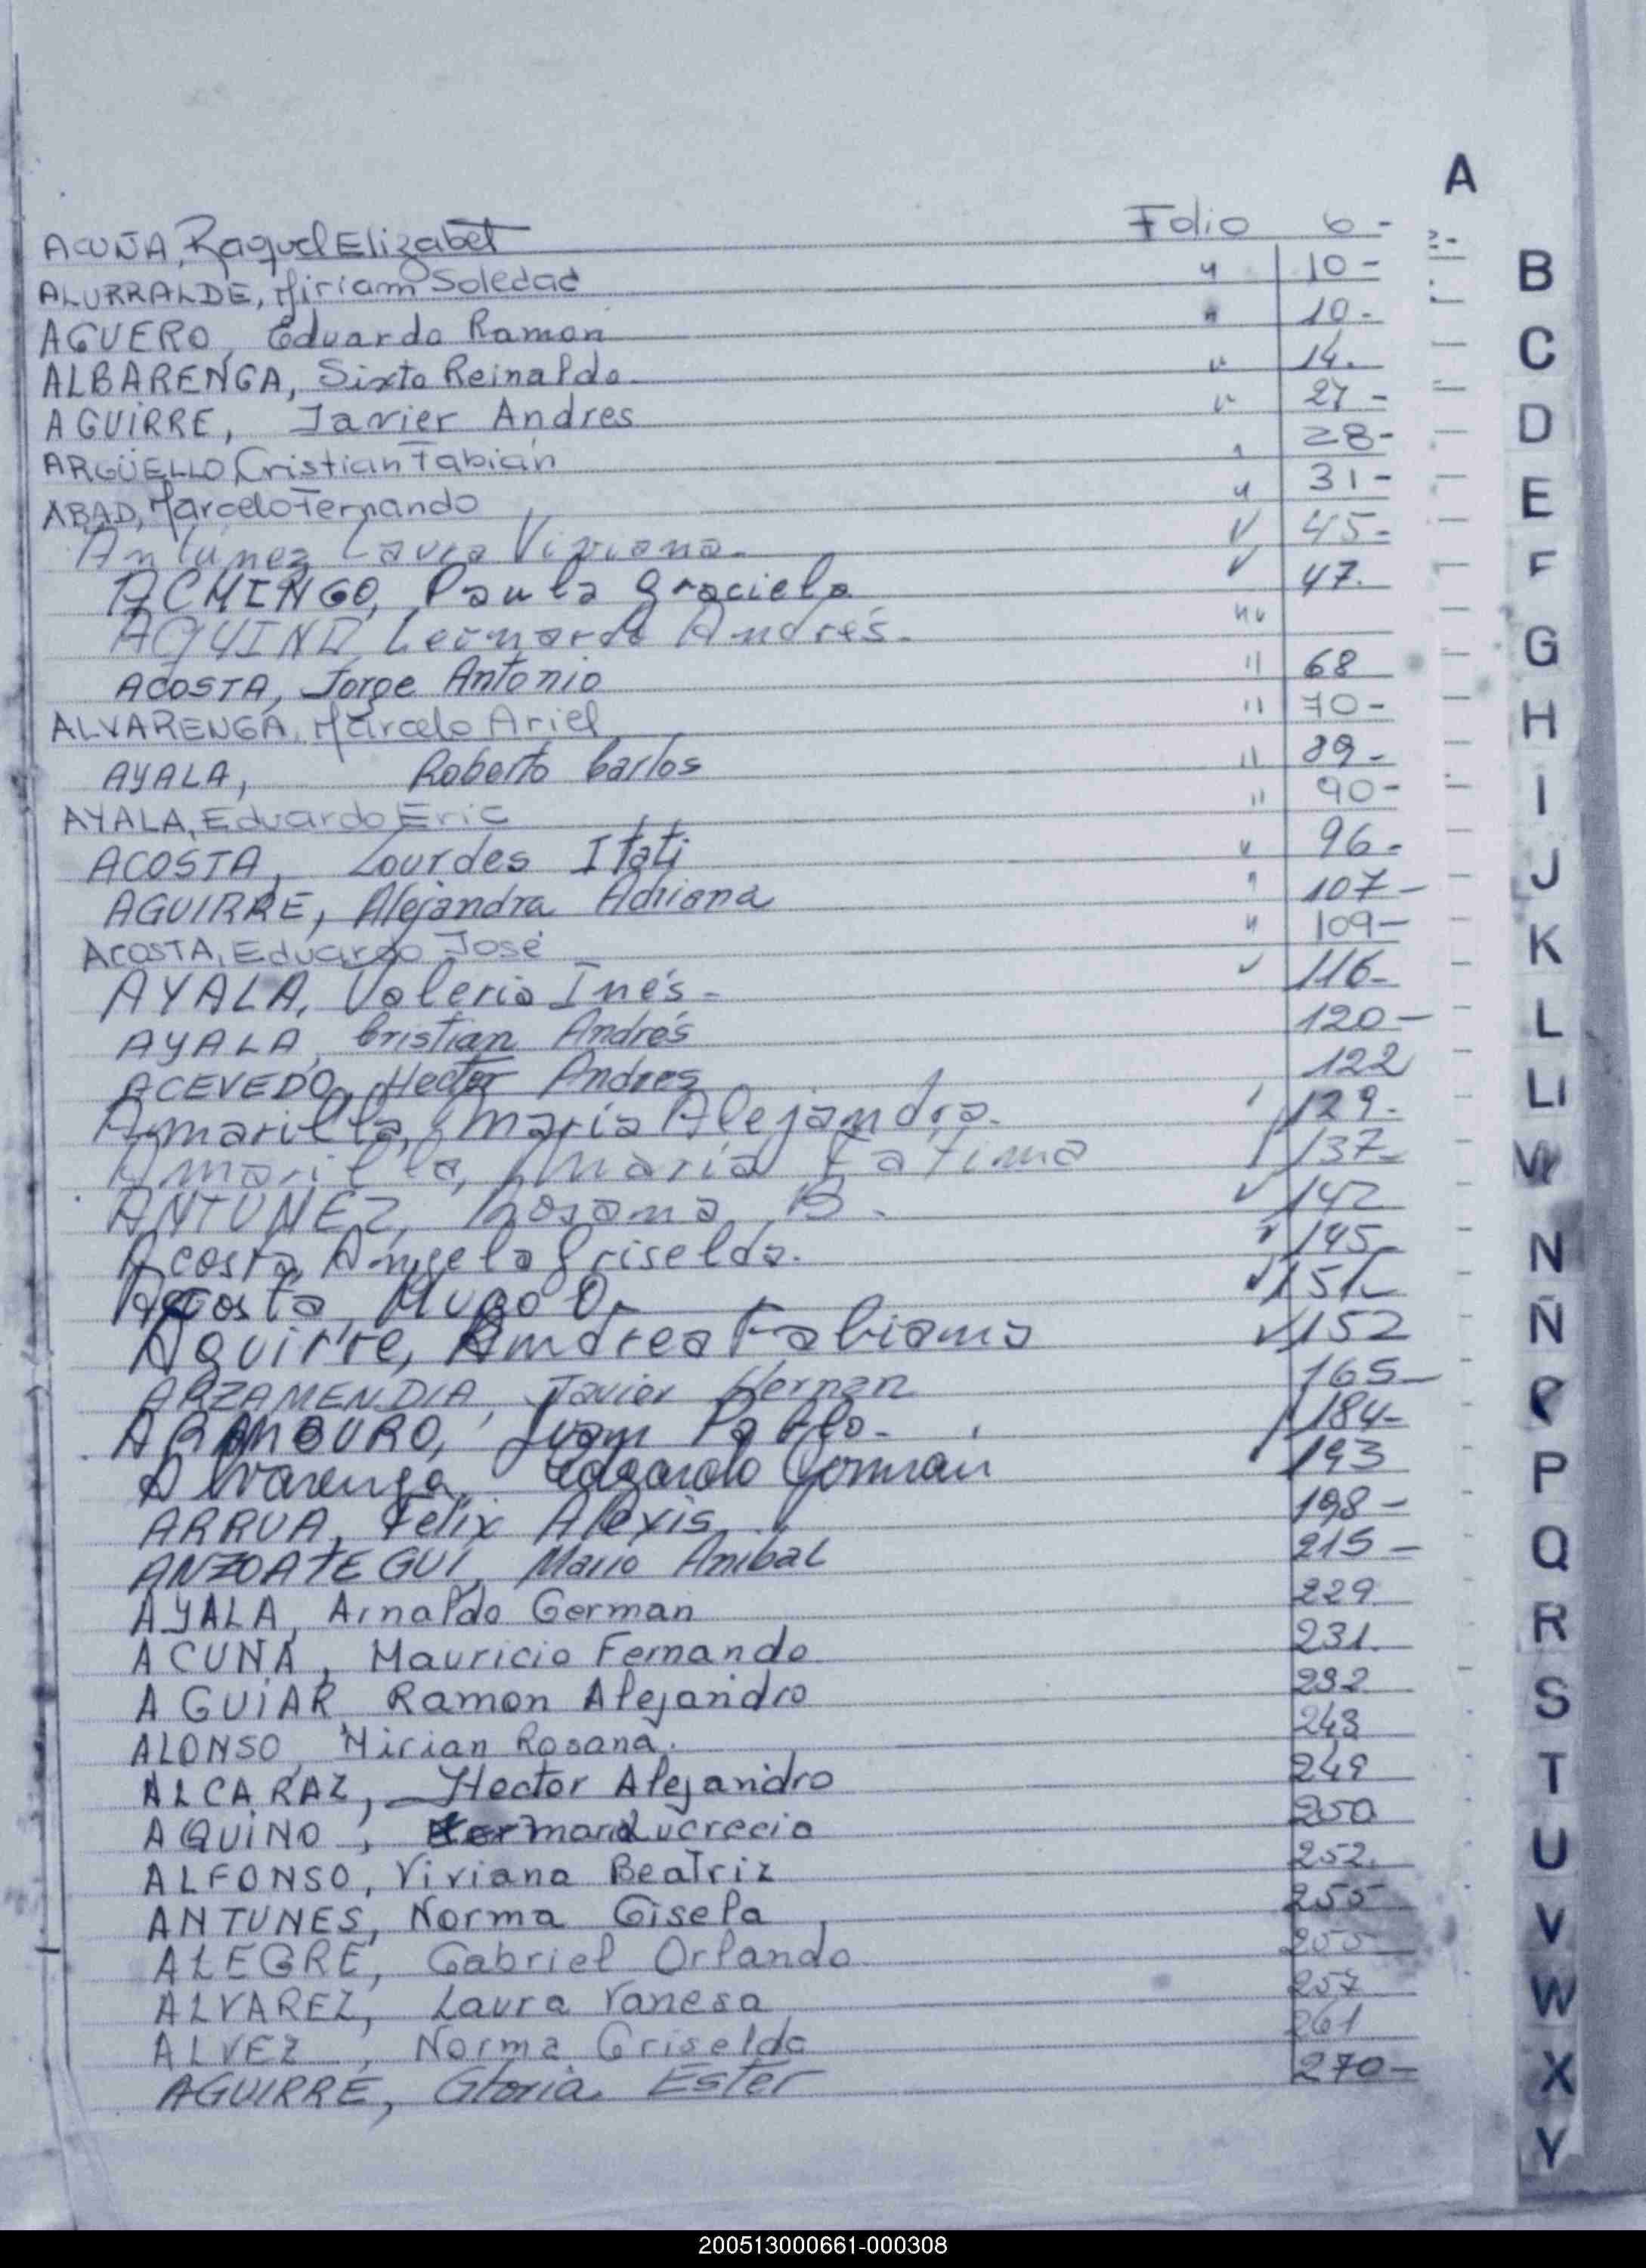 A
ACUÑA, Raquel Elizabet Folio 6-
ALURRALDE, Miriam Soledad " 10-
AGUERO, Eduardo Ramon " 10-
ALBARENGA, Sixto Reinaldo " 14.
AGUIRRE, Javier Andres " 27-
ARGÜELLO, Cristian Fabián " 28-
ABAD, Marcelo Fernando " 31-
Antunez Laura Viviana- " 45-
ACHINGO, Paula Graciela " 47.
AQUINO Leonardo Andrés- "
ACOSTA, Jorge Antonio " 68
ALVARENGA, Marcelo Ariel " 70-
AYALA, Roberto Carlos " 89-
AYALA, Eduardo Eric " 90-
ACOSTA, Lourdes Itati " 96-
AGUIRRE, Alejandra Adriana " 107-
ACOSTA, Eduardo José " 109-
AYALA, Valeria Inés- " 116-
AYALA, Cristian Andrés 120-
ACEVEDO, Hector Andres 122
Amarilla, María Alejandra. 129-
Amarilla, María Fatima 137-
ANTUNEZ, Rosana B. 142
Acosta, Angela Griselda. 145-
Acosta, Hugo O. 151-
Aguirre, Andrea Fabiana 152
ARZAMENDIA, Javier Hernan 165-
ARAMBURO, Juan Pablo- 184-
Alvarenga, Edgardo Germán 193
ARRUA, Felix Alexis 198-
ANZOATEGUI, Mario Anibal 215-
AYALA, Arnaldo German 229.
ACUÑA, Mauricio Fernando 231.
AGUIAR Ramon Alejandro 232
ALONSO, Mirian Rosana. 243
ALCARAZ, Hector Alejandro 249
AQUINO, Lucrecia 250
ALFONSO, Viviana Beatriz 252.
ANTUNES, Norma Gisela 255
ALEGRE, Gabriel Orlando 255
ALVAREZ, Laura Vanesa 257
ALVEZ, Norma Griselda 261
AGUIRRE, Gloria Ester 270-
B
C
D
E
F
G
H
I
J
K
L
Ll
M
N
Ñ
P
Q
R
S
T
U
V
W
X
Y
200513000661-000308